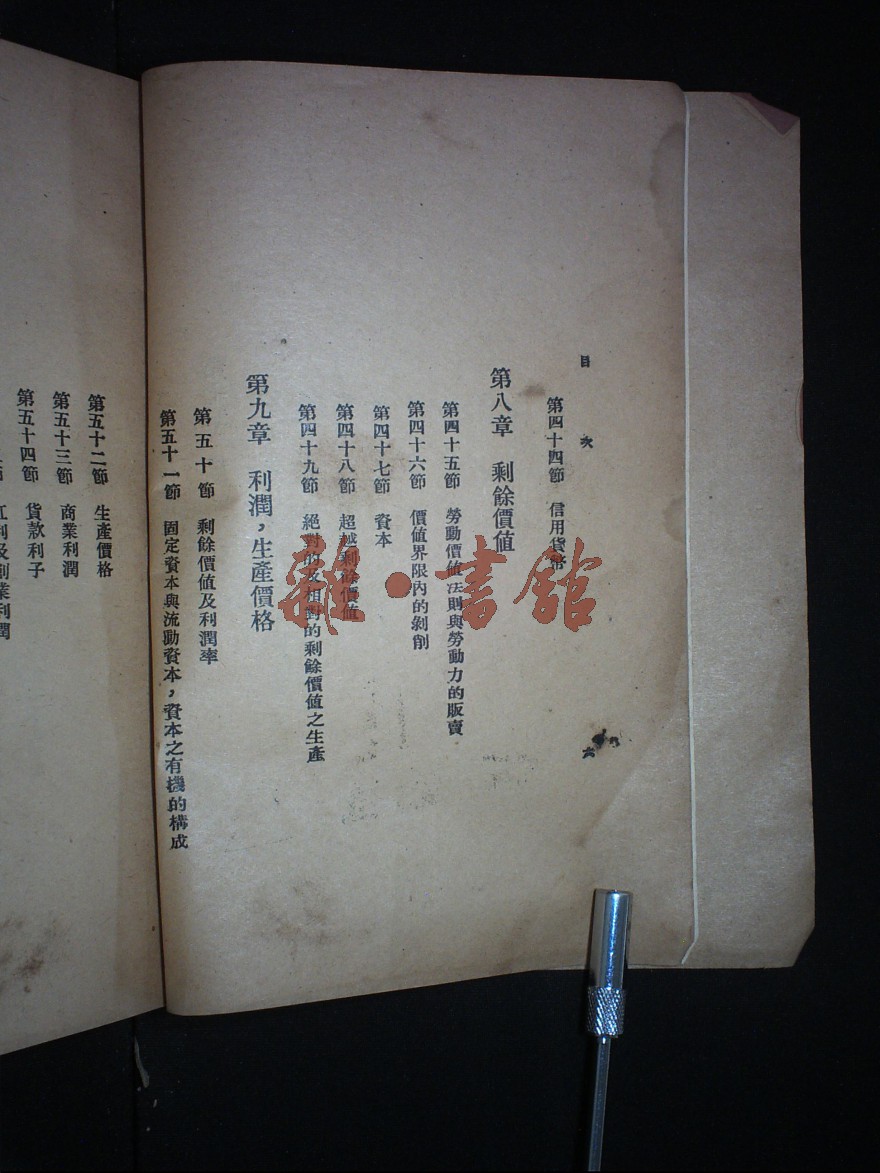 目次
六
第四十四節　信用貨幣
第八章　剩餘價值
第四十五節　勞動價值法則與勞動力的販賣
第四十六節　價值界限內的剝削
第四十七節　資本
第四十八節　超越剩餘價值
第四十九節　絕對的及相對的剩餘價值之生產
第九章　利潤，生產價格
第五十節　剩餘價值及利潤率
第五十一節　固定資本與流動資本，資本之有機的構成
第五十二節　生產價格
第五十三節　商業利潤
第五十四節　貨款利子
節　紅利及創業利潤
雜·書館